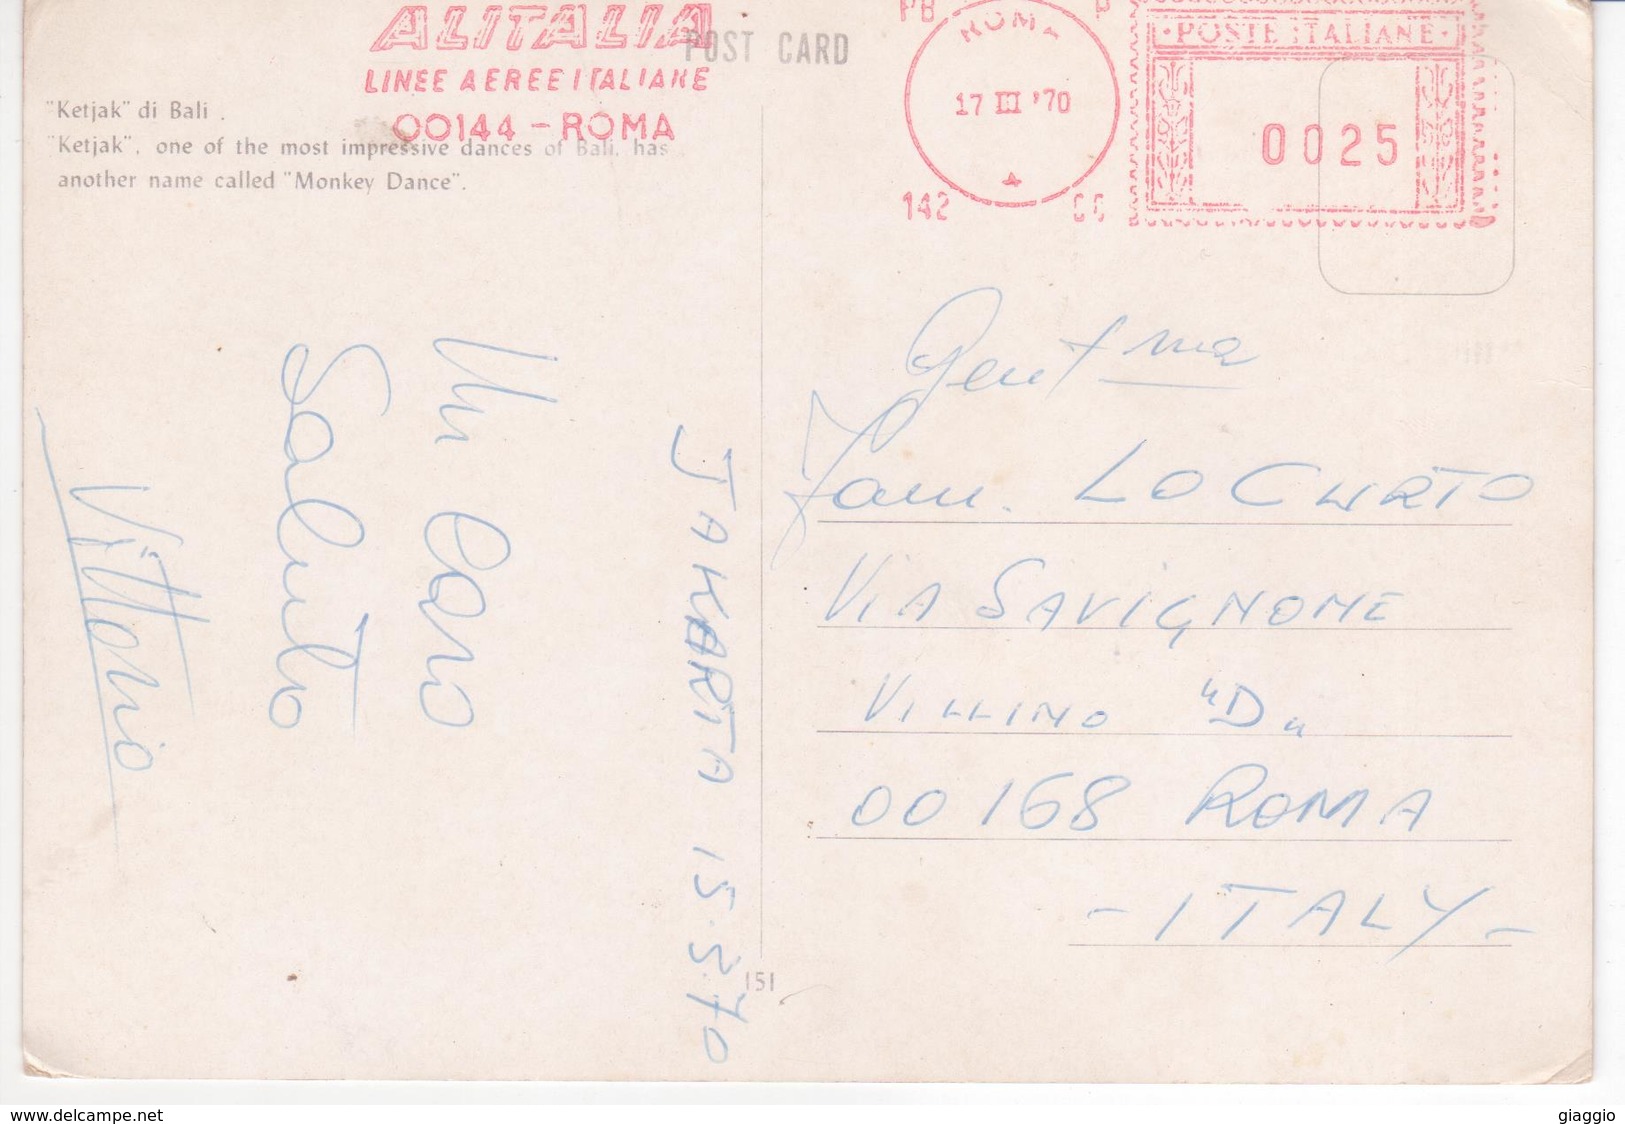 ALITALIA
LINEE AEREE ITALIANE
00144 - ROMA
POST CARD
PB
P
ROMA
17 III '70
142
POSTE ITALIANE
0025
"Ketjak" di Bali .
"Ketjak", one of the most impressive dances of Bali, has
another name called "Monkey Dance".
JAKARTA 15.3.70
Un caro
Saluto
Vittorio
Gent.ma
Fam. LO CURTO
VIA SAVIGNONE
VILLINO "D"
00168 ROMA
- ITALY -
151
www.delcampe.net
giaggio